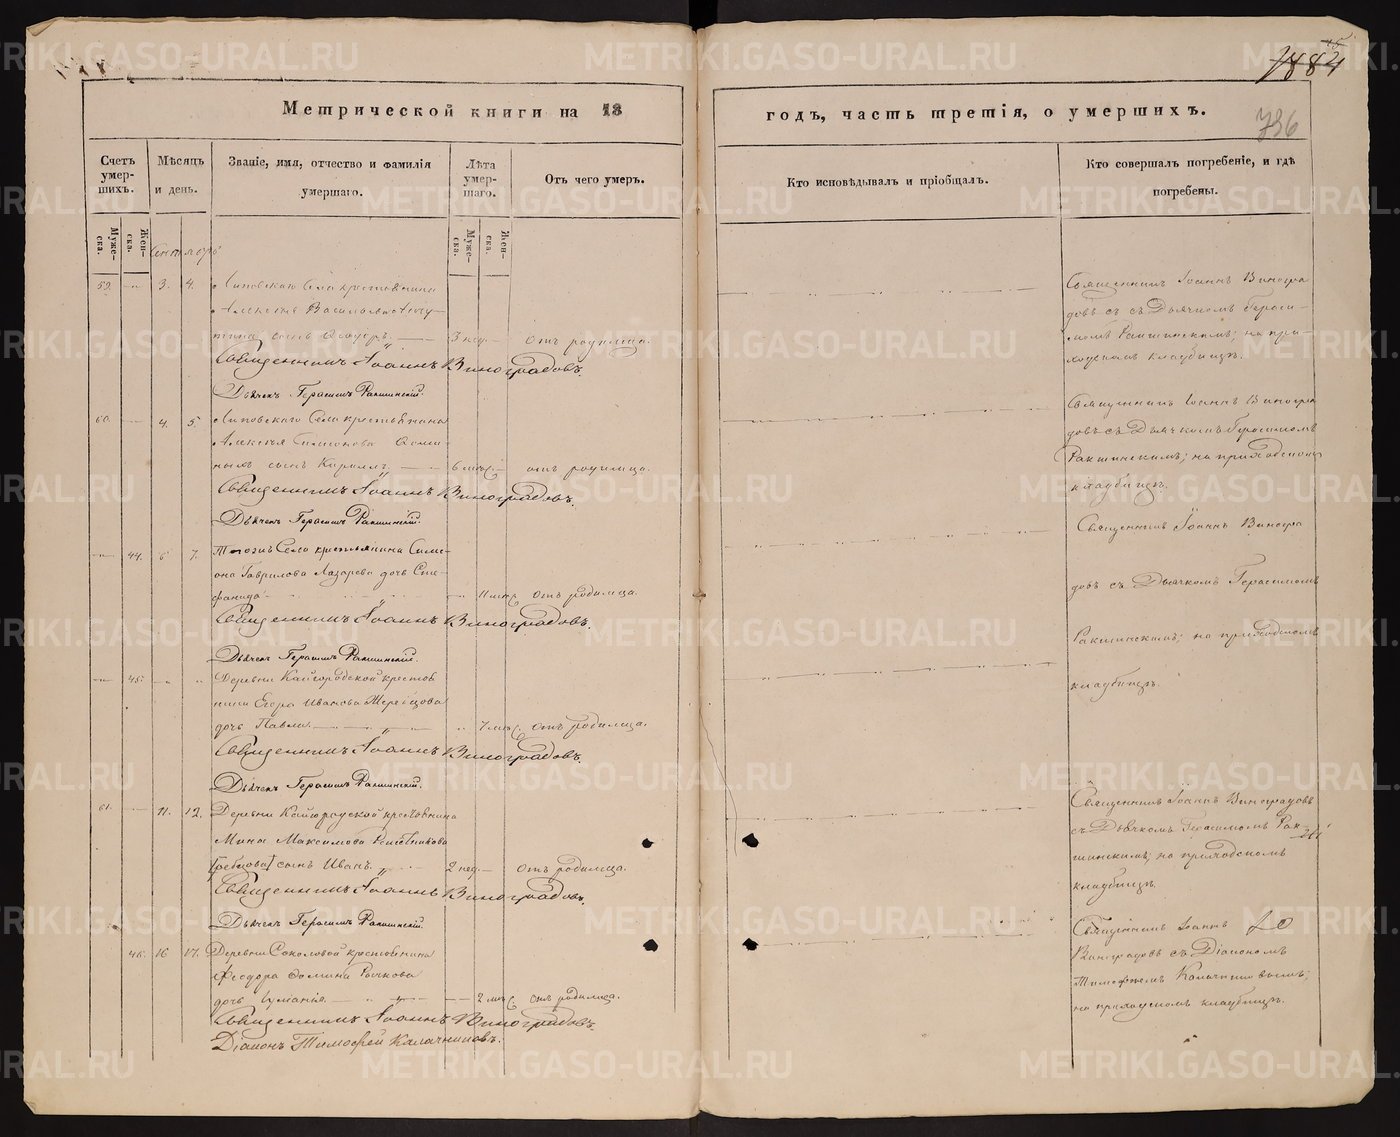 1882
736
Метрической книги на 18
годъ, часть третія, о умершихъ.
Счетъ умер-шихъ.
Мѣсяцъ и день.
Званіе, имя, отчество и фамилія умершаго.
Лѣта умер-шаго.
Отъ чего умеръ.
Кто исповѣдывалъ и пріобщалъ.
Кто совершалъ погребеніе, и гдѣ погребены.
Муже-ска.
Жен-ска.
Муже-ска.
Жен-ска.
59. 3. 4. Липовскаго Села крестьянина
Алексѣя Васильева
сынъ Ѳедоръ. 3 нед. отъ родимца.
Священникъ Іоаннъ Виноградовъ.
Дьячекъ Герасимъ Ракшинскій.
Священникъ Іоаннъ Виногра
довъ съ Дьячкомъ Гераси-
момъ Ракшинскимъ; на при-
ходскомъ кладбищѣ.
60. 4. 5. Липовскаго Села крестьянина
Алексѣя Симионова
сынъ Кириллъ. 6 мѣс. отъ родимца.
Священникъ Іоаннъ Виноградовъ.
Дьячекъ Герасимъ Ракшинскій.
Священникъ Іоаннъ Виногра
довъ съ Дьячкомъ Герасимомъ
Ракшинскимъ; на приходском
кладбищѣ.
44. 6. 7. Тогожъ Села крестьянина Симе-
она Гаврилова Лазарева дочь Сте-
фанида 11 мѣс. отъ родимца.
Священникъ Іоаннъ Виноградовъ.
Дьячекъ Герасимъ Ракшинскій.
Священникъ Іоаннъ Виногра
довъ съ Дьячкомъ Герасимомъ
Ракшинскимъ; на приходскомъ
кладбищѣ.
45. Деревни Кайгородской крестья
нина Егора Иванова
дочь Павла. 7 мѣс. отъ родимца.
Священникъ Іоаннъ Виноградовъ.
Дьячекъ Герасимъ Ракшинскій.
61. 11. 12. Деревни Кайгородской крестьянина
Мина Максимова
сынъ Иванъ. 2 нед. Отъ родимца.
Священникъ Іоаннъ Виноградовъ.
Дьячекъ Герасимъ Ракшинскій.
Священникъ Іоаннъ Виноградовъ
съ Дьячкомъ Герасимомъ Рак-
шинскимъ; на приходскомъ
кладбищѣ.
46. 16 17. Деревни Соколовой крестьянина
Ѳеодора Ѳомина Рычкова
дочь 2 мѣс. отъ родимца.
Священникъ Іоаннъ Виноградовъ.
Діаконъ Тимофей Калачниковъ.
Священникъ Іоаннъ
Виноградовъ съ Діакономъ
Тимофеемъ Калачниковымъ;
на приходскомъ кладбищѣ.
METRIKI.GASO-URAL.RU